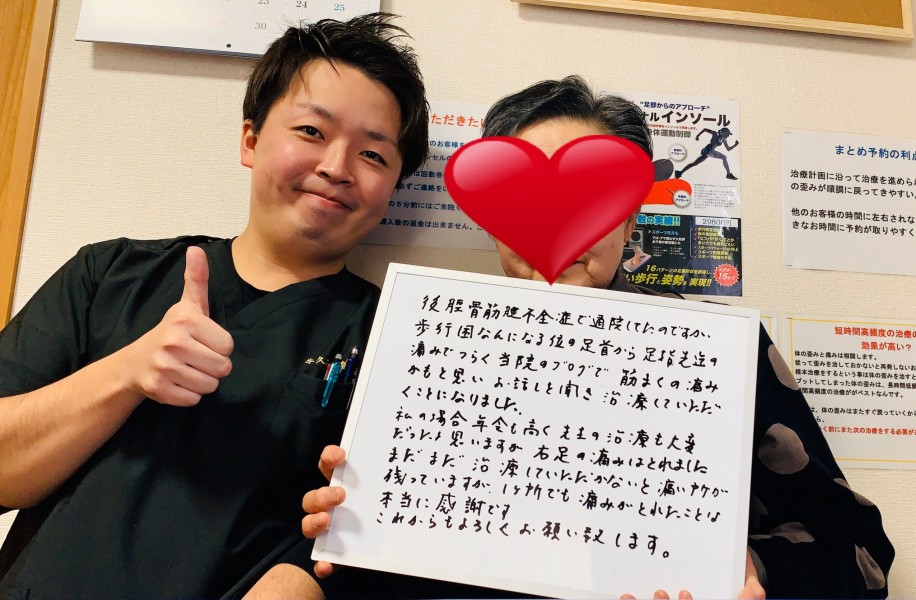 23 24 25
30
ただきたい
のお客様
"足部からのアプローチ"
ールインソール
身体運動制御
数の実績!!
29800円
16パターンの
い歩行と姿勢を実現!!
わずか
15分
5分前にはご来院く
入後の返金は出来ません。
まとめ予約の利点
治療計画に沿って治療を進められ
の歪みが順調に戻ってきやすい。
他のお客様の時間に左右されな
きなお時間に予約が取りやすく
短時間高頻度の治療の
効果が高い?
体の歪みと痛みは相関します。
従って歪みを治しておかないと再発しないお
根本治療をするという事は体の歪みを治すと
プットしてしまった体の歪みは、長時間低頻
時間高頻度の治療ががベストなんです。
、体の歪みはまたすぐ戻っていくから
く前にまた次の治療をする必要が
牛久
後脛骨筋腱不全症で通院してたのですが、
歩行困なんになる位の足首から足指先迄の
痛みでつらく当院のブログで筋まくの痛み
かもと思いお話しを聞き治療していただ
くことになりました。
私の場合年令も高く先生の治療も大変
だったと思いますが右足の痛みはとれました
まだまだ治療していただかないと痛い所が
残っていますが1ヶ所でも痛みがとれたことは
本当に感謝です
これからもよろしくお願い致します。